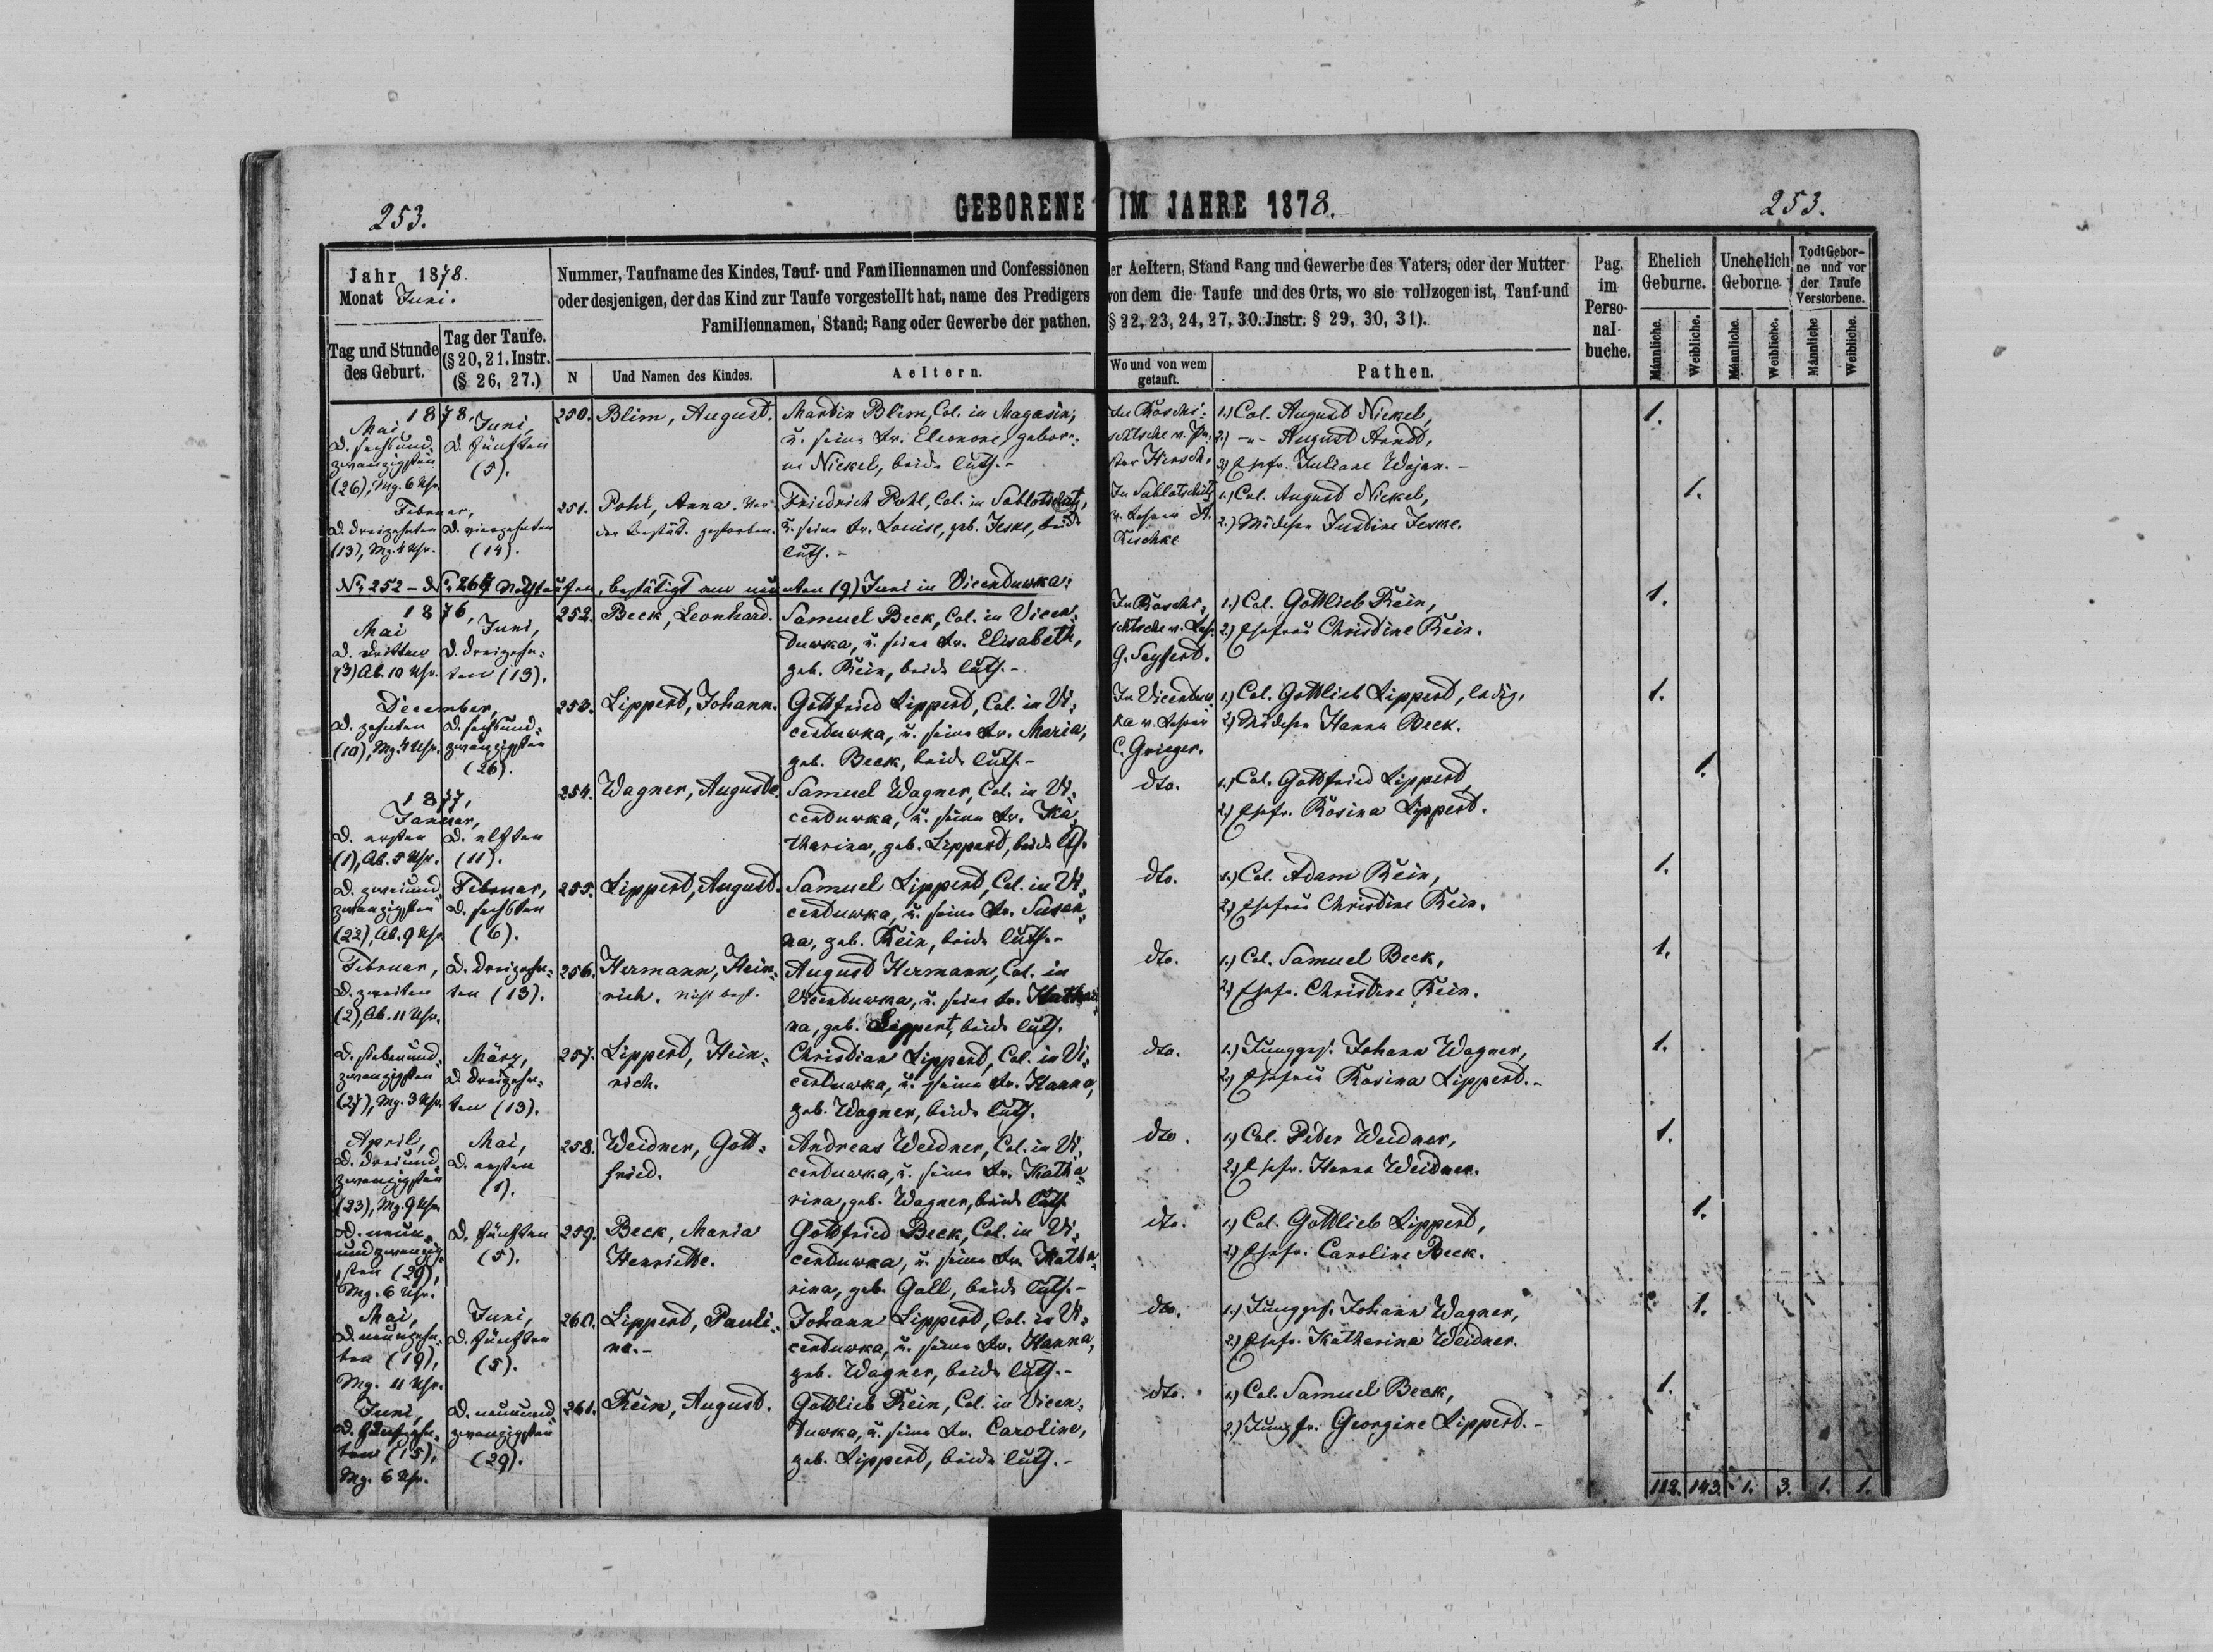 253.
GEBORENE IM JAHRE 1878.
253.
Jahr 1878.
Monat Juni.
Tag und Stunde des Geburt.
Tag der Taufe.
(§ 20, 21. Instr.
(§ 26, 27.)
Nummer, Taufname des Kindes, Tauf- und Familiennamen und Confessionen
oder desjenigen, der das Kind zur Taufe vorgestellt hat, name des Predigers
Familiennamen, Stand; Rang oder Gewerbe der pathen.
N
Und Namen des Kindes.
Aeltern.
der Aeltern, Stand Rang und Gewerbe des Vaters, oder der Mutter
von dem die Taufe und des Orts, wo sie vollzogen ist, Tauf-und
§ 22, 23, 24, 27, 30. Jnstr. § 29, 30, 31).
Wo und von wem
getauft.
Pathen.
Pag.
im
Perso-
nal-
buche.
Ehelich
Geburne.
Unehelich
Geborne.
Todt Gebor-
ne und vor
der Taufe
Verstorbene.
Männliche.
Weibliche.
Männliche.
Weibliche.
Männliche
Weibliche.
1878.
Mai,
d. sechsund-
zwanzigsten
(26), Mg. 6 Uhr.
Juni,
d. fünften
(5).
250.
Blim, August.
Martin Blim, Col. in Magasin,
u. seine Fr. Eleonore, gebor:
ne Nickel, beide luth.-
In Roschi:
schtsche v. Pa:
stor Hersch.
1.) Col. August Nickel,
2.) -"- August Arndt,
3.) Ehefr. Juliane Wajan.-
1.
Februar,
d. dreizehnten
(13), Mg. 4 Uhr.
d. vierzehnten
(14).
251.
Pohl, Anna. Vor
der Bestät. gestorben.
Friedrich Pohl, Col. in Sablotschitz,
u. seine Fr. Louise, geb. Jeske, beide
luth.-
In Sablotschitz
v. Lehrer A.
Reschke
1.) Col. August Nickel,
2.) Mädchen Justine Jeske.
1.
No 252 - No 267 Nothtaufen, bestätigt am neunten (9) Juni in Vicentuwka:
1876,
Mai
d. dritten
(3) Ab. 10 Uhr.
Juni,
d. dreizehn:
ten (13).
252.
Beck, Leonhard.
Samuel Beck, Col. in Vicen:
tuwka, u. seine Fr. Elisabeth,
geb. Rein, beide luth.-
In Roschi:
schtsche v. Leh.
G. Seyferd.
1.) Col. Gottlieb Rein,
2.) Ehefrau Christine Rein.
1.
December,
d. zehnten
(10), Mg. 4 Uhr.
d. sechsund:
zwanzigsten
(26).
253.
Lippert, Johann.
Gottfried Lippert, Col. in Vi:
centuwka, u. seine Fr. Maria,
geb. Beck, beide luth.-
In Vicentuw
ka v. Lehrer
C. Grieger.
1.) Col. Gottlieb Lippert, ledig,
2.) Mädchen Hanna Beck.
1.
1877,
Januar,
d. ersten
(1), Ab. 5 Uhr.
d. elften
(11).
254.
Wagner, Auguste.
Samuel Wagner, Col. in Vi:
centuwka, u. seine Fr. Ka:
tharina, geb. Lippert, beide lth.
dto.
1.) Col. Gottfried Lippert,
2.) Ehefr. Rosina Lippert.
1.
d. zweiund
zwanzigsten
(22), Ab. 9 Uhr
Februar,
d. sechsten
(6).
255.
Lippert, August.
Samuel Lippert, Col. in Vi:
centuwka, u. seine Fr. Susan:
na, geb. Rein, beide luth.-
dto.
1.) Col. Adam Rein,
2.) Ehefrau Christine Rein.
1.
Februar,
d. zweiten
(2), Ab. 11 Uhr.
d. dreizehn:
ten (13).
256.
Hermann, Hein:
rich. Nicht best.
August Hermann, Col. in
Vicentuwka, u. seine Fr. Kathari
na, geb. Lippert, beide luth.
dto.
1.) Col. Samuel Beck,
2.) Ehefr. Christine Rein.
1.
d. siebenund:
zwanzigsten
(27), Mg. 3 Uhr.
März,
d. dreizehn:
ten (13).
257.
Lippert, Hein:
rich.
Christian Lippert, Col. in Vi:
centuwka, u. seine Fr. Hanna,
geb. Wagner, beide luth.
dto.
1.) Junggs. Johann Wagner,
2.) Ehefrau Rosina Lippert.-
1.
April,
d. dreiund
zwanzigsten
(23), Mg. 9 Uhr.
Mai,
d. ersten
(1).
258.
Weidner, Gott:
fried.
Andreas Weidner, Col. in Vi:
centuwka, u. seine Fr. Katha:
rina, geb. Wagner, beide luth
dto.
1.) Col. Peter Weidner,
2.) Ehefr. Hanna Weidner.
1.
d. neun
und zwanzig:
sten (29),
Mg. 6 Uhr.
d. fünften
(5).
259.
Beck, Maria
Henriette.
Gottfried Beck, Col. in Vi:
centuwka, u. seine Fr. Katha
rina, geb. Gall, beide luth.-
dto.
1.) Col. Gottlieb Lippert,
2.) Ehefr. Caroline Beck.
1.
Mai,
d. neunzehn:
ten (19),
Mg. 11 Uhr.
Juni,
d. fünften
(5).
260.
Lippert, Pauli:
ne.-
Johann Lippert, Col. in Vi:
centuwka, u. seine Fr. Hanna,
geb. Wagner, beide luth.-
dto.
1.) Junggs. Johann Wagner,
2.) Ehefr. Katharina Weidner.
1.
Juni,
d. fünfzehn:
ten (15),
Mg. 6 Uhr.
d. neunund
zwanzigsten
(29).
261.
Rein, August.
Gottlieb Rein, Col. in Vicen:
tuwka, u. seine Fr. Caroline,
geb. Lippert, beide luth.-
dto.
1.) Col. Samuel Beck,
2.) Jungfr. Georgine Lippert.-
1.
112. 143. 1. 3. 1. 1.